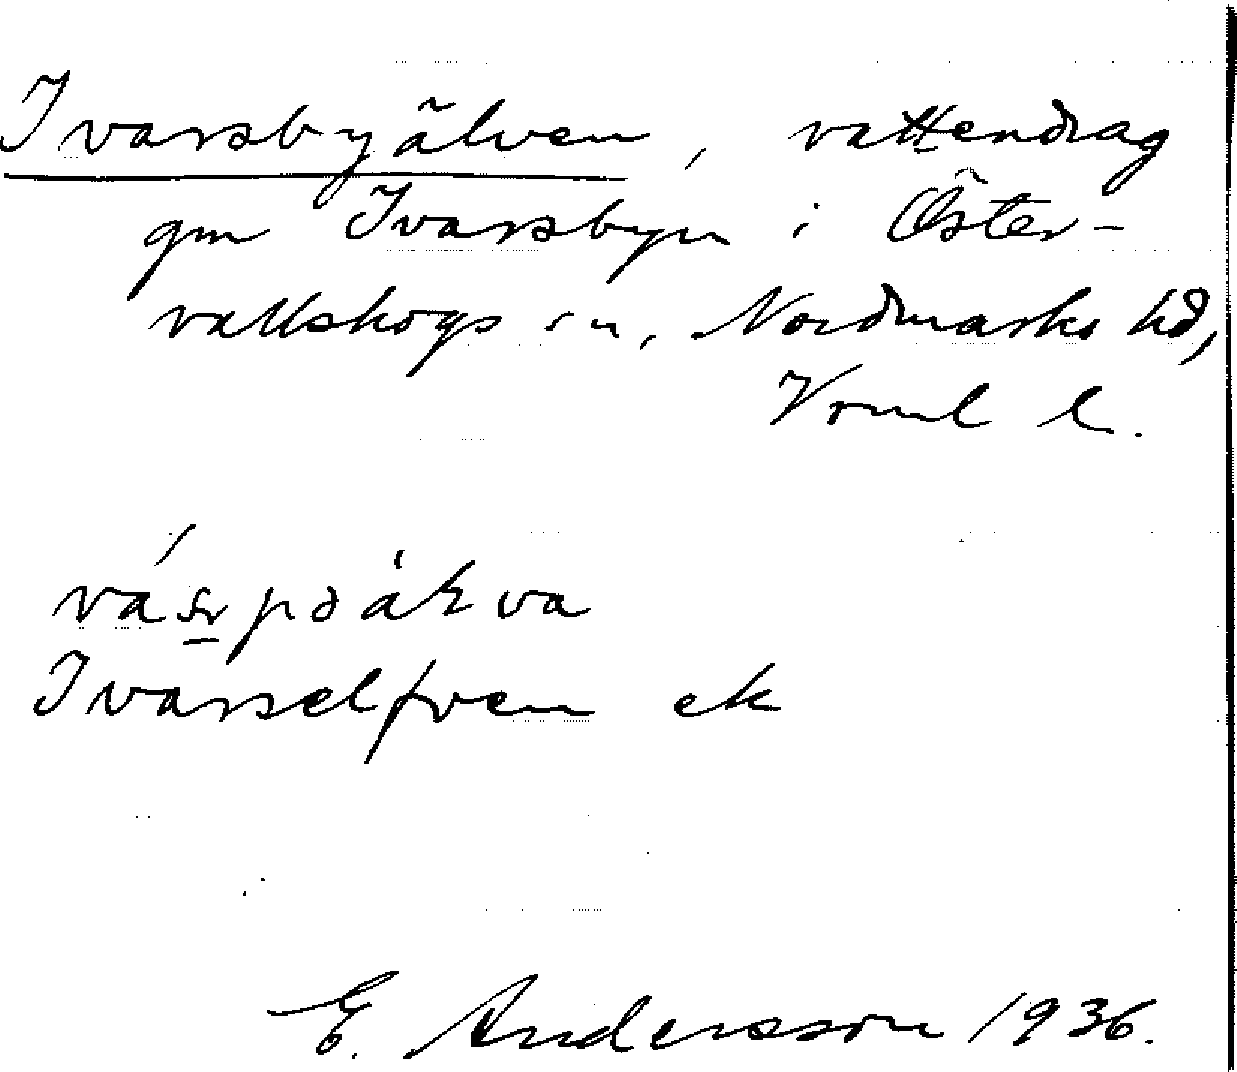 Ivarsbyälven, vattendrag
gm Ivarsbyn i Öster-
vallskogs sn, Nordmarks hd,
Vrml l.
Ivarselfven ek
E. Andersson 1936.